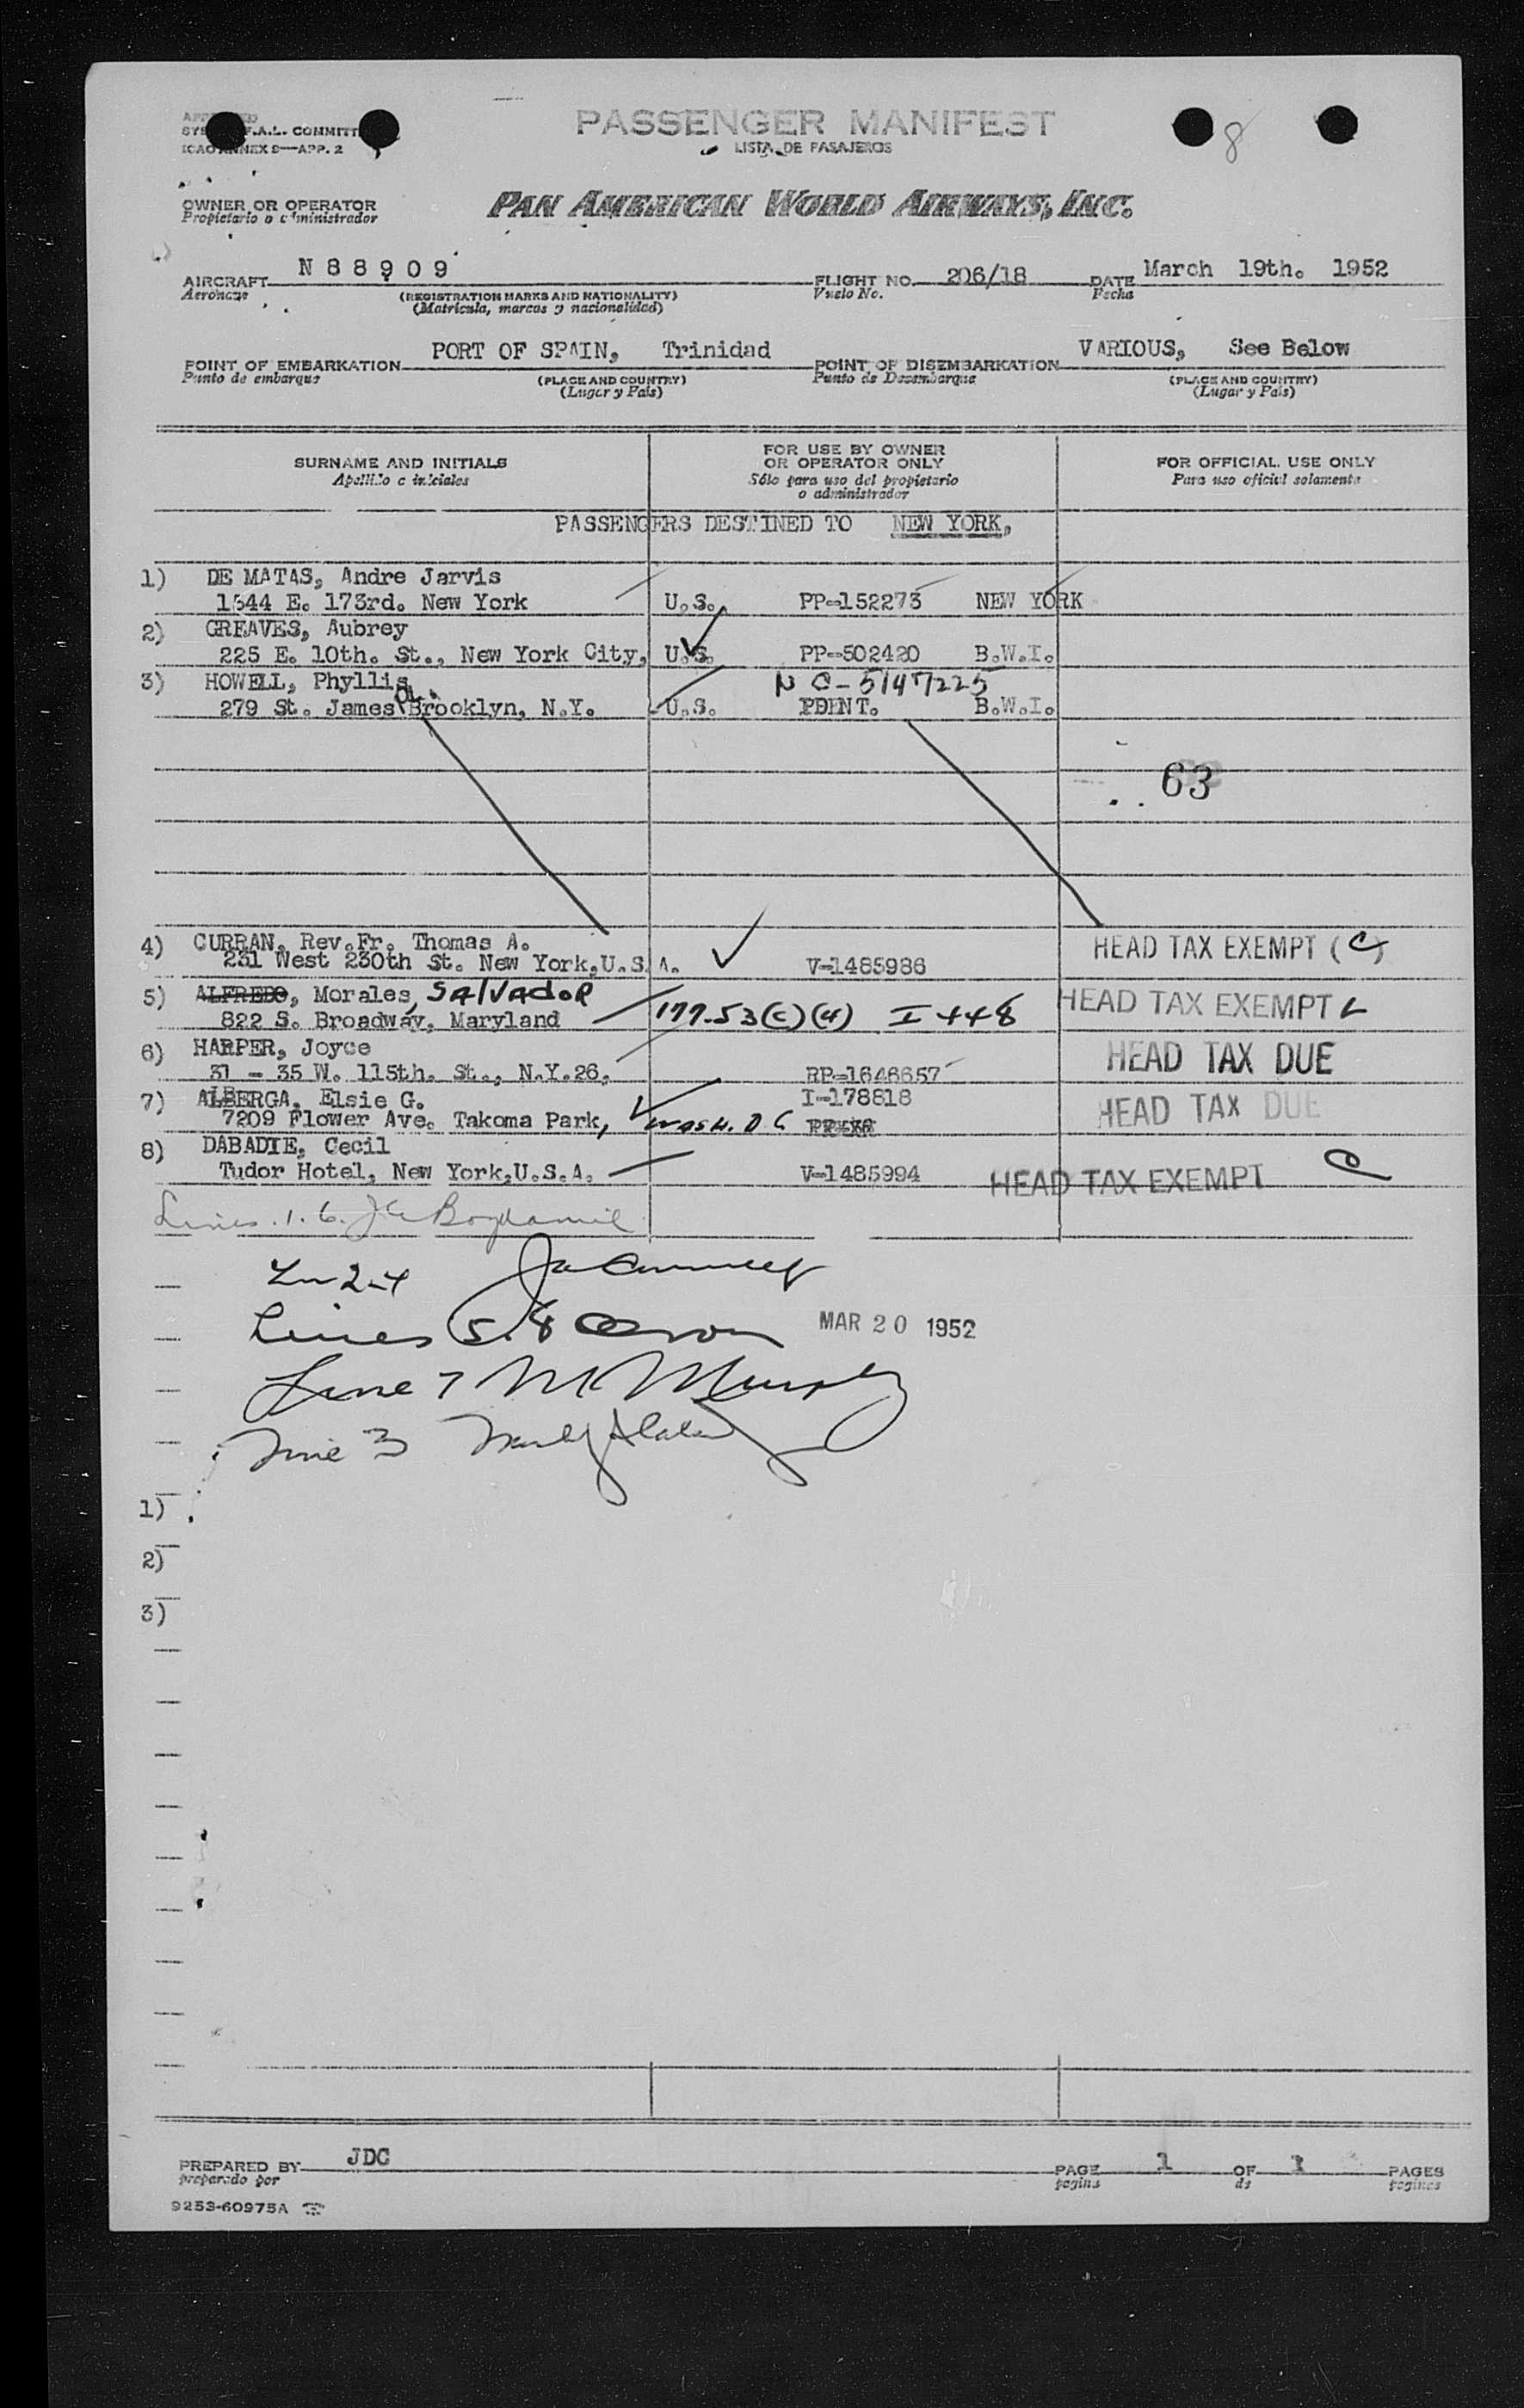 APPROVED
SYS F.A.L. COMMITT
ICAO ANNEX 9—APP. 2
PASSENGER MANIFEST
LISTA DE PASAJEROS
8
OWNER OR OPERATOR
Propietario o administrador
PAN AMERICAN WORLD AIRWAYS, INC.
AIRCRAFT N 8 8 9 0 9 FLIGHT NO. 206/18 DATE March 19th. 1952
Aeronave (REGISTRATION MARKS AND NATIONALITY) Vuelo No. Fecha
(Matricula, marcas y nacionalidad)
POINT OF EMBARKATION PORT OF SPAIN, Trinidad POINT OF DISEMBARKATION VARIOUS, See Below
Punto de embarque (PLACE AND COUNTRY) Punto de Desembarque (PLACE AND COUNTRY)
(Lugar y País) (Lugar y País)
SURNAME AND INITIALS FOR USE BY OWNER OR OPERATOR ONLY FOR OFFICIAL USE ONLY
Apellido e iniciales Sólo para uso del propietario o administrador Para uso oficial solamente
PASSENGERS DESTINED TO NEW YORK,
1) DE MATAS, Andre Jarvis
1544 E. 173rd. New York U.S. PP-152273 NEW YORK
2) GREAVES, Aubrey
225 E. 10th. St., New York City, U.S. PP-502420 B.W.I.
3) HOWELL, Phyllis N C-5147225
279 St. James PL. Brooklyn, N.Y. U.S. PDENT. B.W.I.
63
4) CURRAN, Rev.Fr. Thomas A. HEAD TAX EXEMPT (C)
231 West 230th St. New York,U.S.A. V-1485986
5) ALFREDO, Morales, SALVADOR HEAD TAX EXEMPT
822 S. Broadway, Maryland 177.53(c)(4) I 448
6) HARPER, Joyce HEAD TAX DUE
31 - 35 W. 115th. St., N.Y.26. RP-1646657
7) ALBERGA, Elsie G. I-178818 HEAD TAX DUE
7209 Flower Ave. Takoma Park, WASH. D C
8) DABADIE, Cecil
Tudor Hotel, New York,U.S.A. V-1485994 HEAD TAX EXEMPT C
Lines 1. 6.
Ln 2-4
Lines 5. 8 MAR 20 1952
Line 7 M Murphy
Line 3
1)
2)
3)
PREPARED BY JDC PAGE 1 OF 1 PAGES
preparado por pagina de paginas
9253-60975A